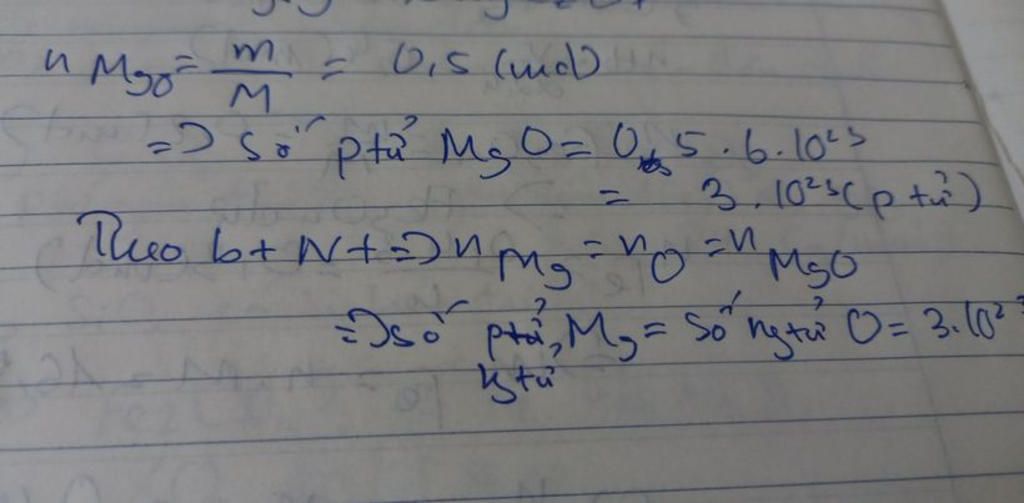 n MgO = m/M = 0,5 (mol)
=> số ptử MgO = 0,5 . 6 . 10²³
= 3 . 10²³ (ptử)
Theo bt Nt => n Mg = n O = n MgO
=> số ptử, Mg = số ngtử O = 3.10²³
ngtử